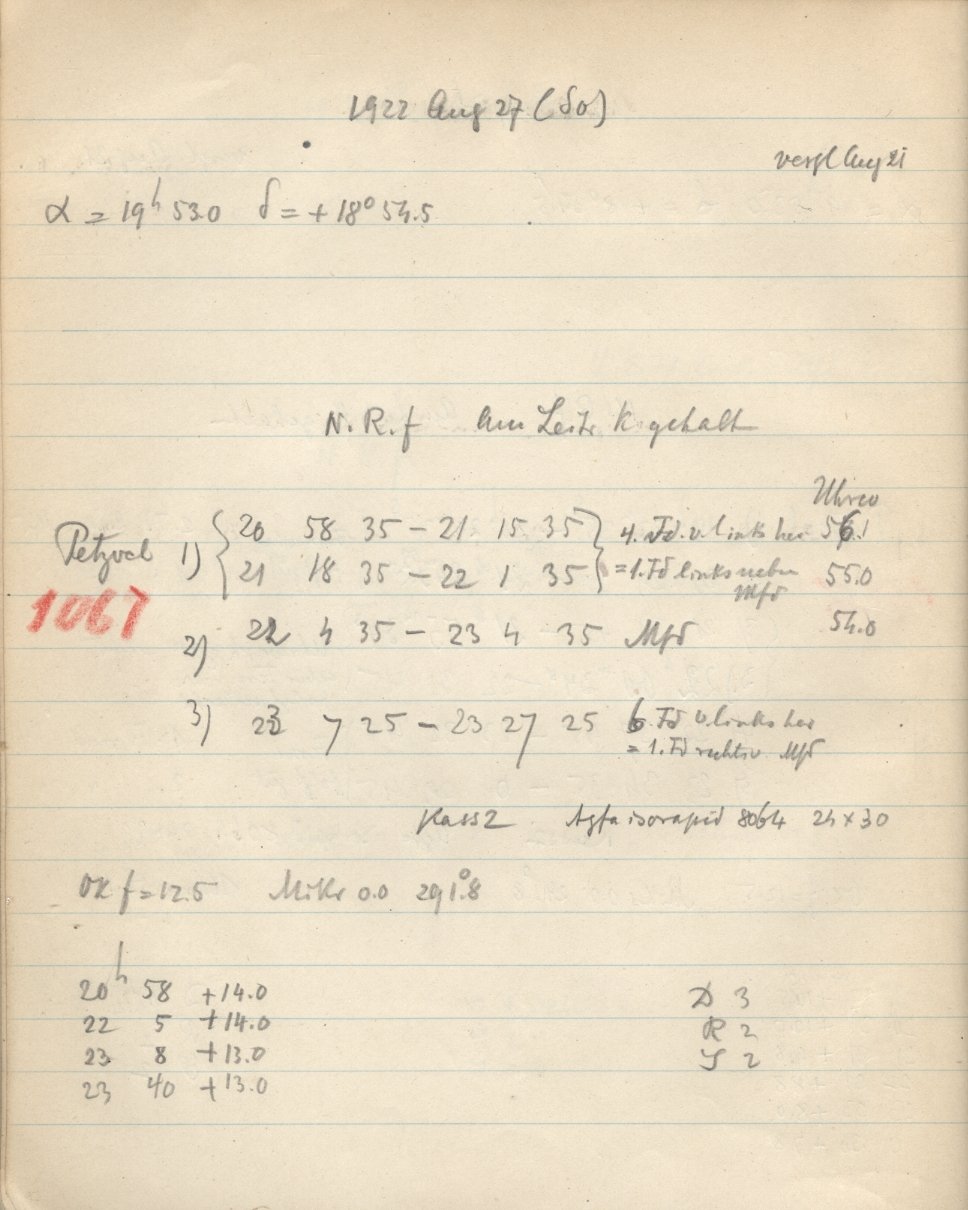 1922 Aug 27 (So)
vergl Aug 21
α = 19h 53.0 δ = + 18° 54.5
N. R. f Am Leitr. K gehalt
Uhren
Petzval 1) { 20 58 35 – 21 15 35 } 4. Fd. v. links her 56.1
21 18 35 – 22 1 35 = 1. Fd links neben Mfd 55.0
1067
2) 22 4 35 – 23 4 35 Mfd 54.0
3) 23 7 25 – 23 27 25 6. Fd v links her
= 1. Fd rechts v Mfd
Kass 2 Agfa isorapid 8064 24 x 30
OK f = 12.5 Mikr 0.0 291°.8
20h 58 +14.0
22 5 +14.0
23 8 +13.0
23 40 +13.0
D 3
R 2
S 2